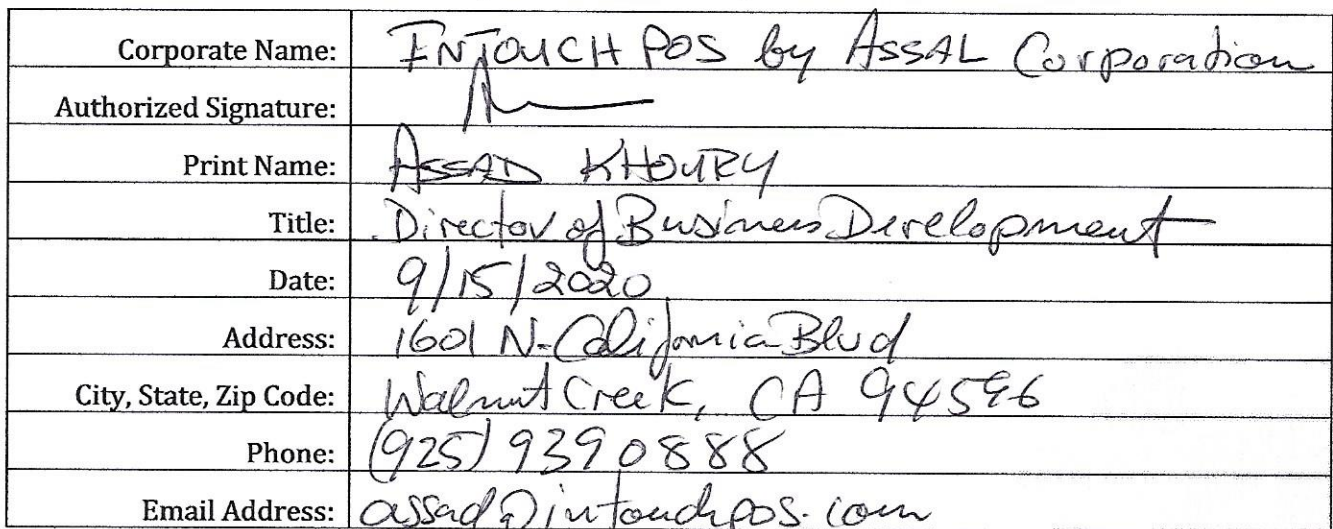 Corporate Name: INTOUCH POS by ASSAL Corporation
Authorized Signature:
Print Name: ASSAD KHOURY
Title: Director of Business Development
Date: 9/15/2020
Address: 1601 N. California Blvd
City, State, Zip Code: Walnut Creek, CA 94596
Phone: (925) 939 0888
Email Address: assad@intouchpos.com